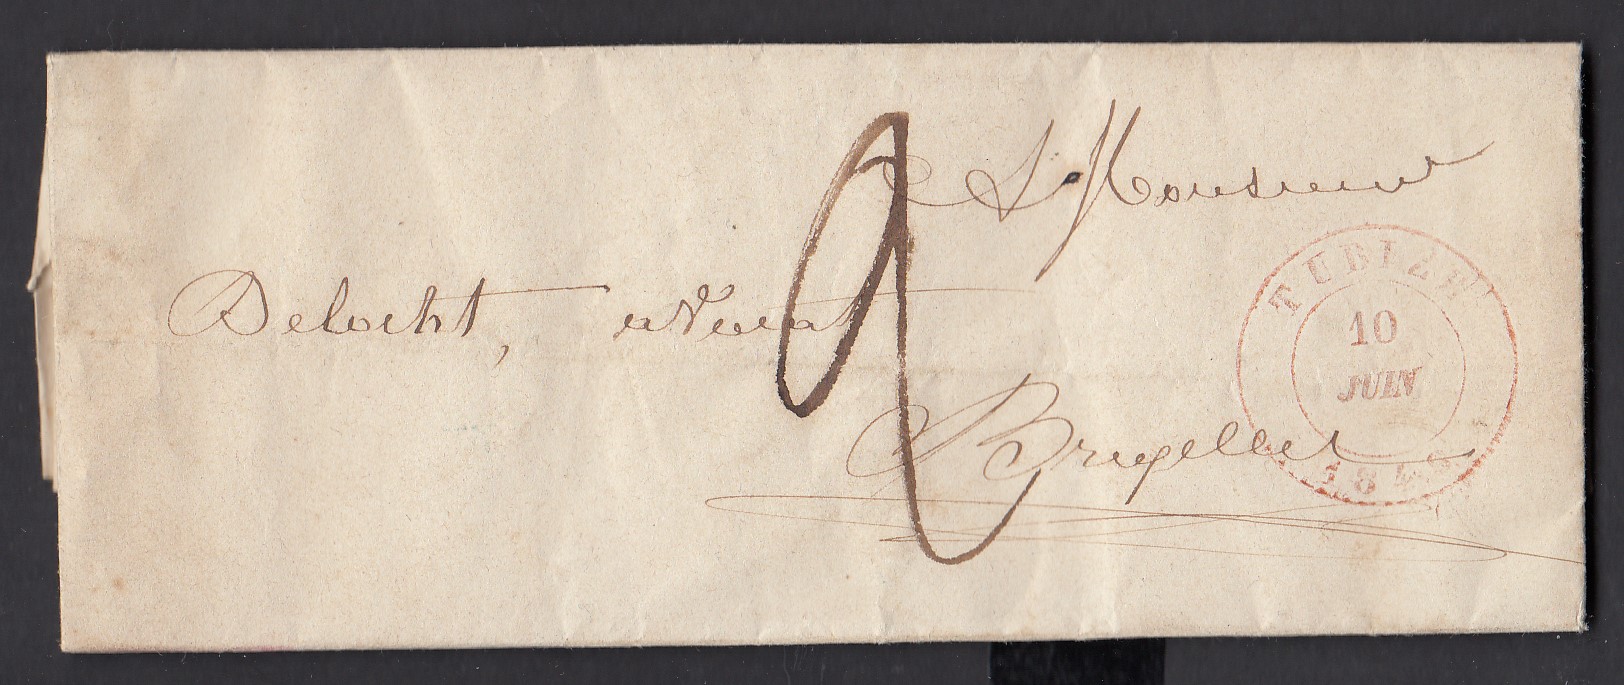 A Monsieur
Delocht, avocat
Bruxelles
2
TUBIZE
10
JUIN